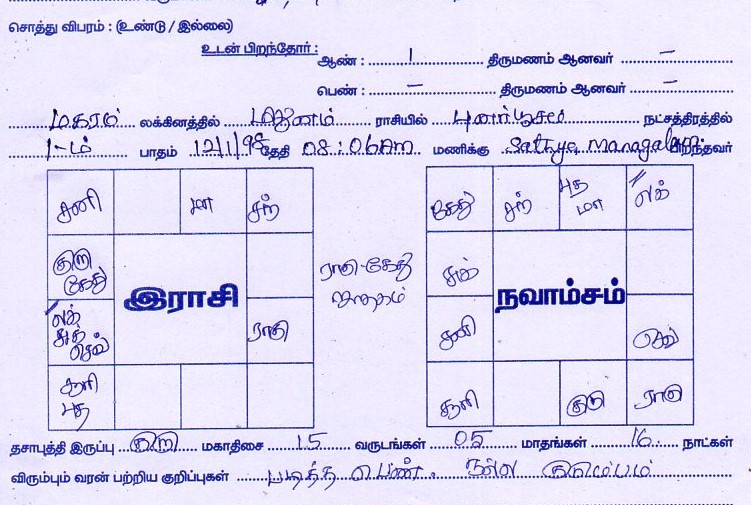 சொத்து விபரம் : (உண்டு / இல்லை)
உடன் பிறந்தோர் : ஆண் : 1 திருமணம் ஆனவர் –
பெண் : – திருமணம் ஆனவர் –
மகரம் லக்கினத்தில் மிதுனம் ராசியில் புனர்பூசம் நட்சத்திரத்தில்
1-ம் பாதம் 12/1/98 தேதி 08:06Am மணிக்கு Sathya Managalam பிறந்தவர்
சனி மா சந்
குரு கேது
இராசி
லக் சுக் செவ்
ராகு
சூரி புத
ராகு-கேது ஜாதகம்
கேது சந் புத மா லக்
சுக்
நவாம்சம்
சனி செவ்
சூரி குரு ராகு
தசாபுத்தி இருப்பு குரு மகாதிசை 15 வருடங்கள் 05 மாதங்கள் 16 நாட்கள்
விரும்பும் வரன் பற்றிய குறிப்புகள் படித்த பெண். நல்ல குடும்பம்